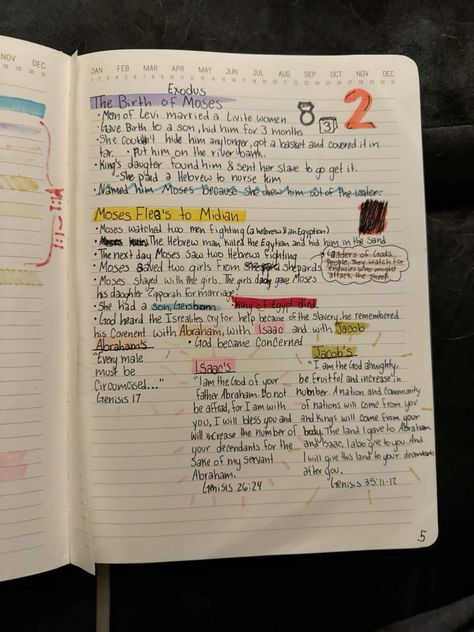 NOV DEC
JAN FEB MAR APR MAY JUN JUL AUG SEP OCT NOV DEC
Exodus
The Birth of Moses
8
3
2
• Man of Levi married a Livite women
• Gave Birth to a son, hid him for 3 months
• She couldn't hide him any longer, got a basket and covered it in
tar. • Put him on the river bank.
• King's daughter found him & sent her slave to go get it.
- She paid a Hebrew to nurse him
• Named him Moses because she drew him out of the water.
Moses Flea's to Midian
• Moses watched two men fighting (a hebrew & an Egyption)
• The Hebrew man killed the Egytian and hid him in the sand
• The next day Moses saw two Hebrews fighting
• Moses saved two girls from shepards
Leaders of Gods
people. They watch for
enemies who might
attack the sheep.
• Moses stayed with the girls. The girls dady gave Moses
his daughter Zipporah for marriage.
• She had a son, Gershom • King of Egypt died
• God heard the Isrealites cry for help because of the slavery, he remembered
his Covenent with Abraham, with Isaac and with Jacob
• God became Concerned
Abraham's
"Every male
must be
Circumcised..."
Genisis 17
Isaac's
"I am the God of your
Father Abraham. Do not
be afraid, for I am with
you, I will bless you and
will increase the number of
your decendants for the
Sake of my servant
Abraham.
Genisis 26:24
Jacob's
"I am the God almighty.
be Fruitful and increase in
number. A nation and community
of nations will come from you
and Kings will come from your
body. The land I gave to Abraham
and Isaac, I also give to you. And
I will give this land to your decendants
after you.
Genisis 35:11-12
5